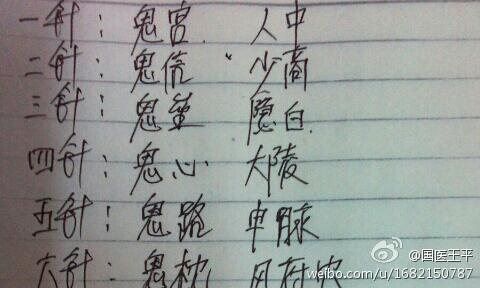 一针：鬼宫 人中
二针：鬼信 少商
三针：鬼垒 隐白
四针：鬼心 大陵
五针：鬼路 申脉
六针：鬼枕 风府穴
@国医王平
weibo.com/u/1682150787